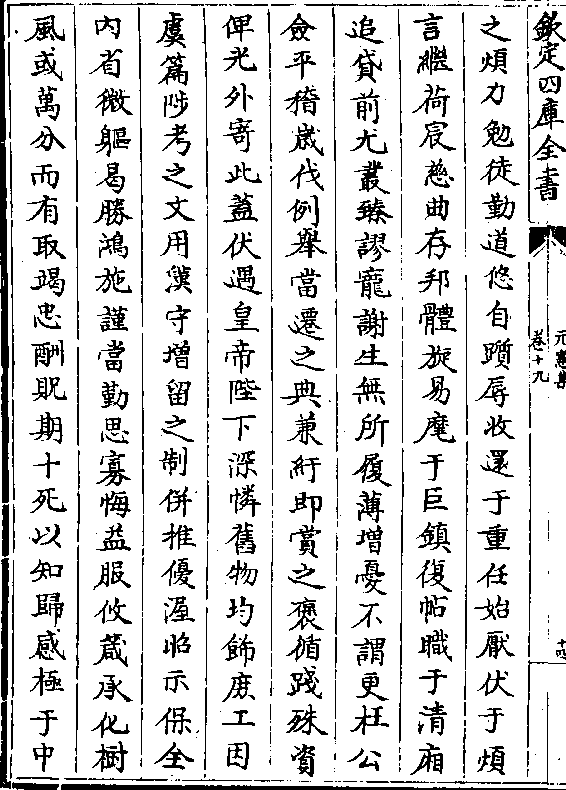 欽定四庫全書
元憲集
卷十九
十四
之煩力勉徒勤道悠自躓辱收還于重任始厭伏于煩
言繼荷宸慈曲存邦體旋易麾于巨鎮復帖職于清廂
追貸前尤叢臻謬寵謝生無所履薄增憂不謂更枉公
僉平稽歲伐例舉當遷之典兼紆即賞之褒循踐殊資
俾光外寄此蓋伏遇皇帝陛下深憐舊物均飾庶工因
虞篇陟考之文用漢守增留之制併推優渥昭示保全
內省微軀曷勝鴻施謹當勤思寡悔益服攸箴承化樹
風或萬分而有取竭忠酬貺期十死以知歸感極于中